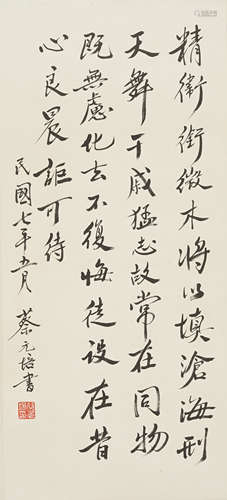 精衛銜微木將以填滄海刑
天舞干戚猛志故常在同物
既無慮化去不復悔徒設在昔
心良晨詎可待
民國七年五月 蔡元培書